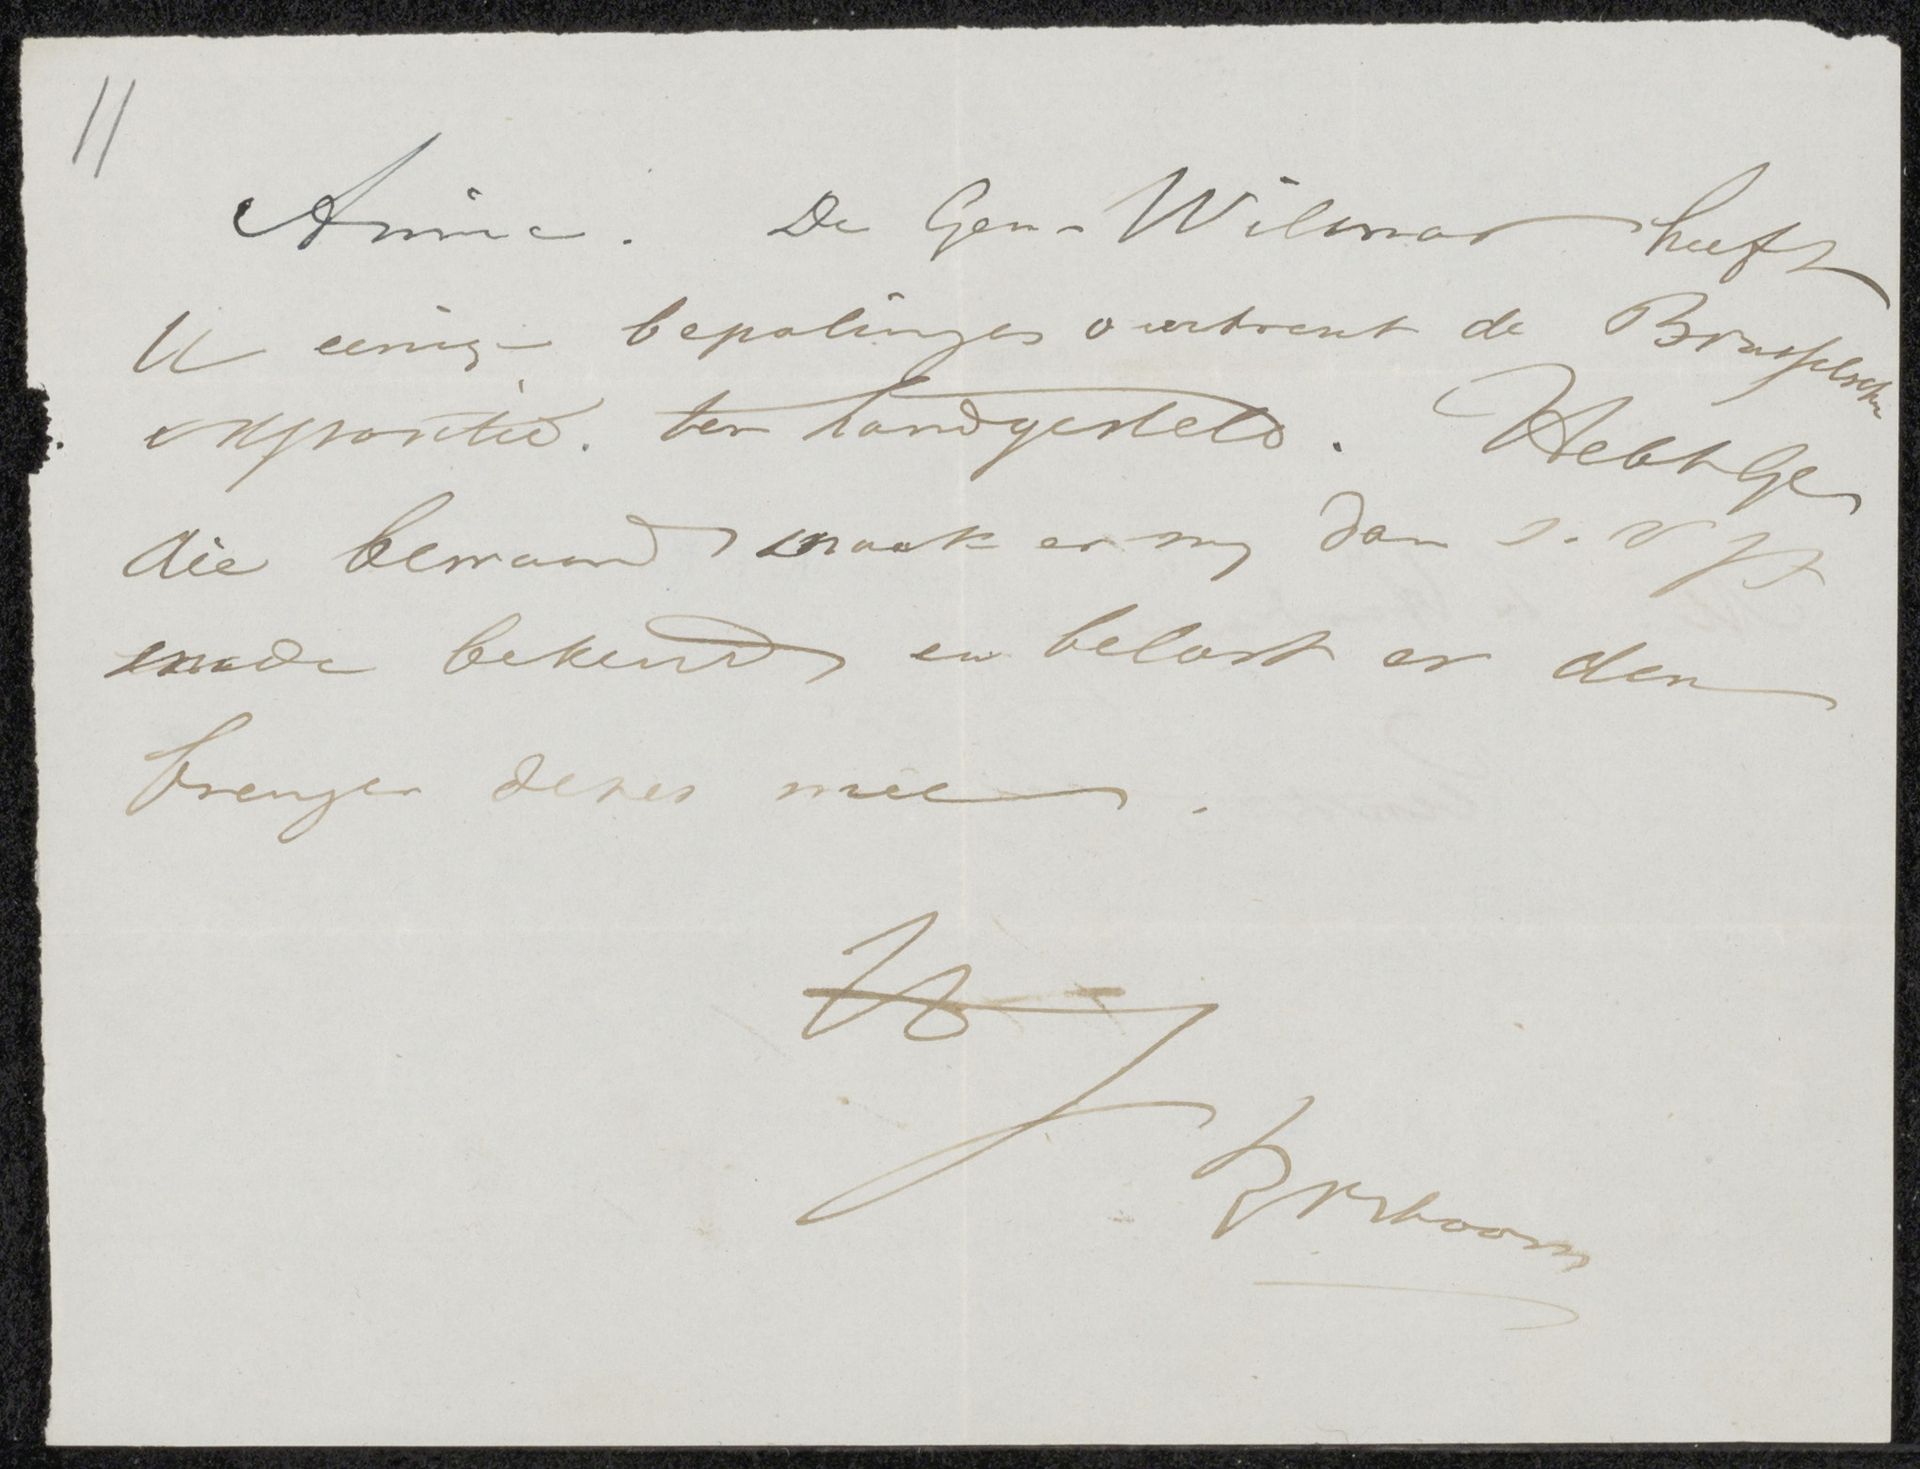 11
Amice. De Gen. Wilmar heeft
U eenige bepalingen omtrent de Brusselsche
expositie. ter handgesteld. Hebt Ge
die bewaard maak er my dan s. v. pl
mede bekend en belast er den
brenger dezes mee.